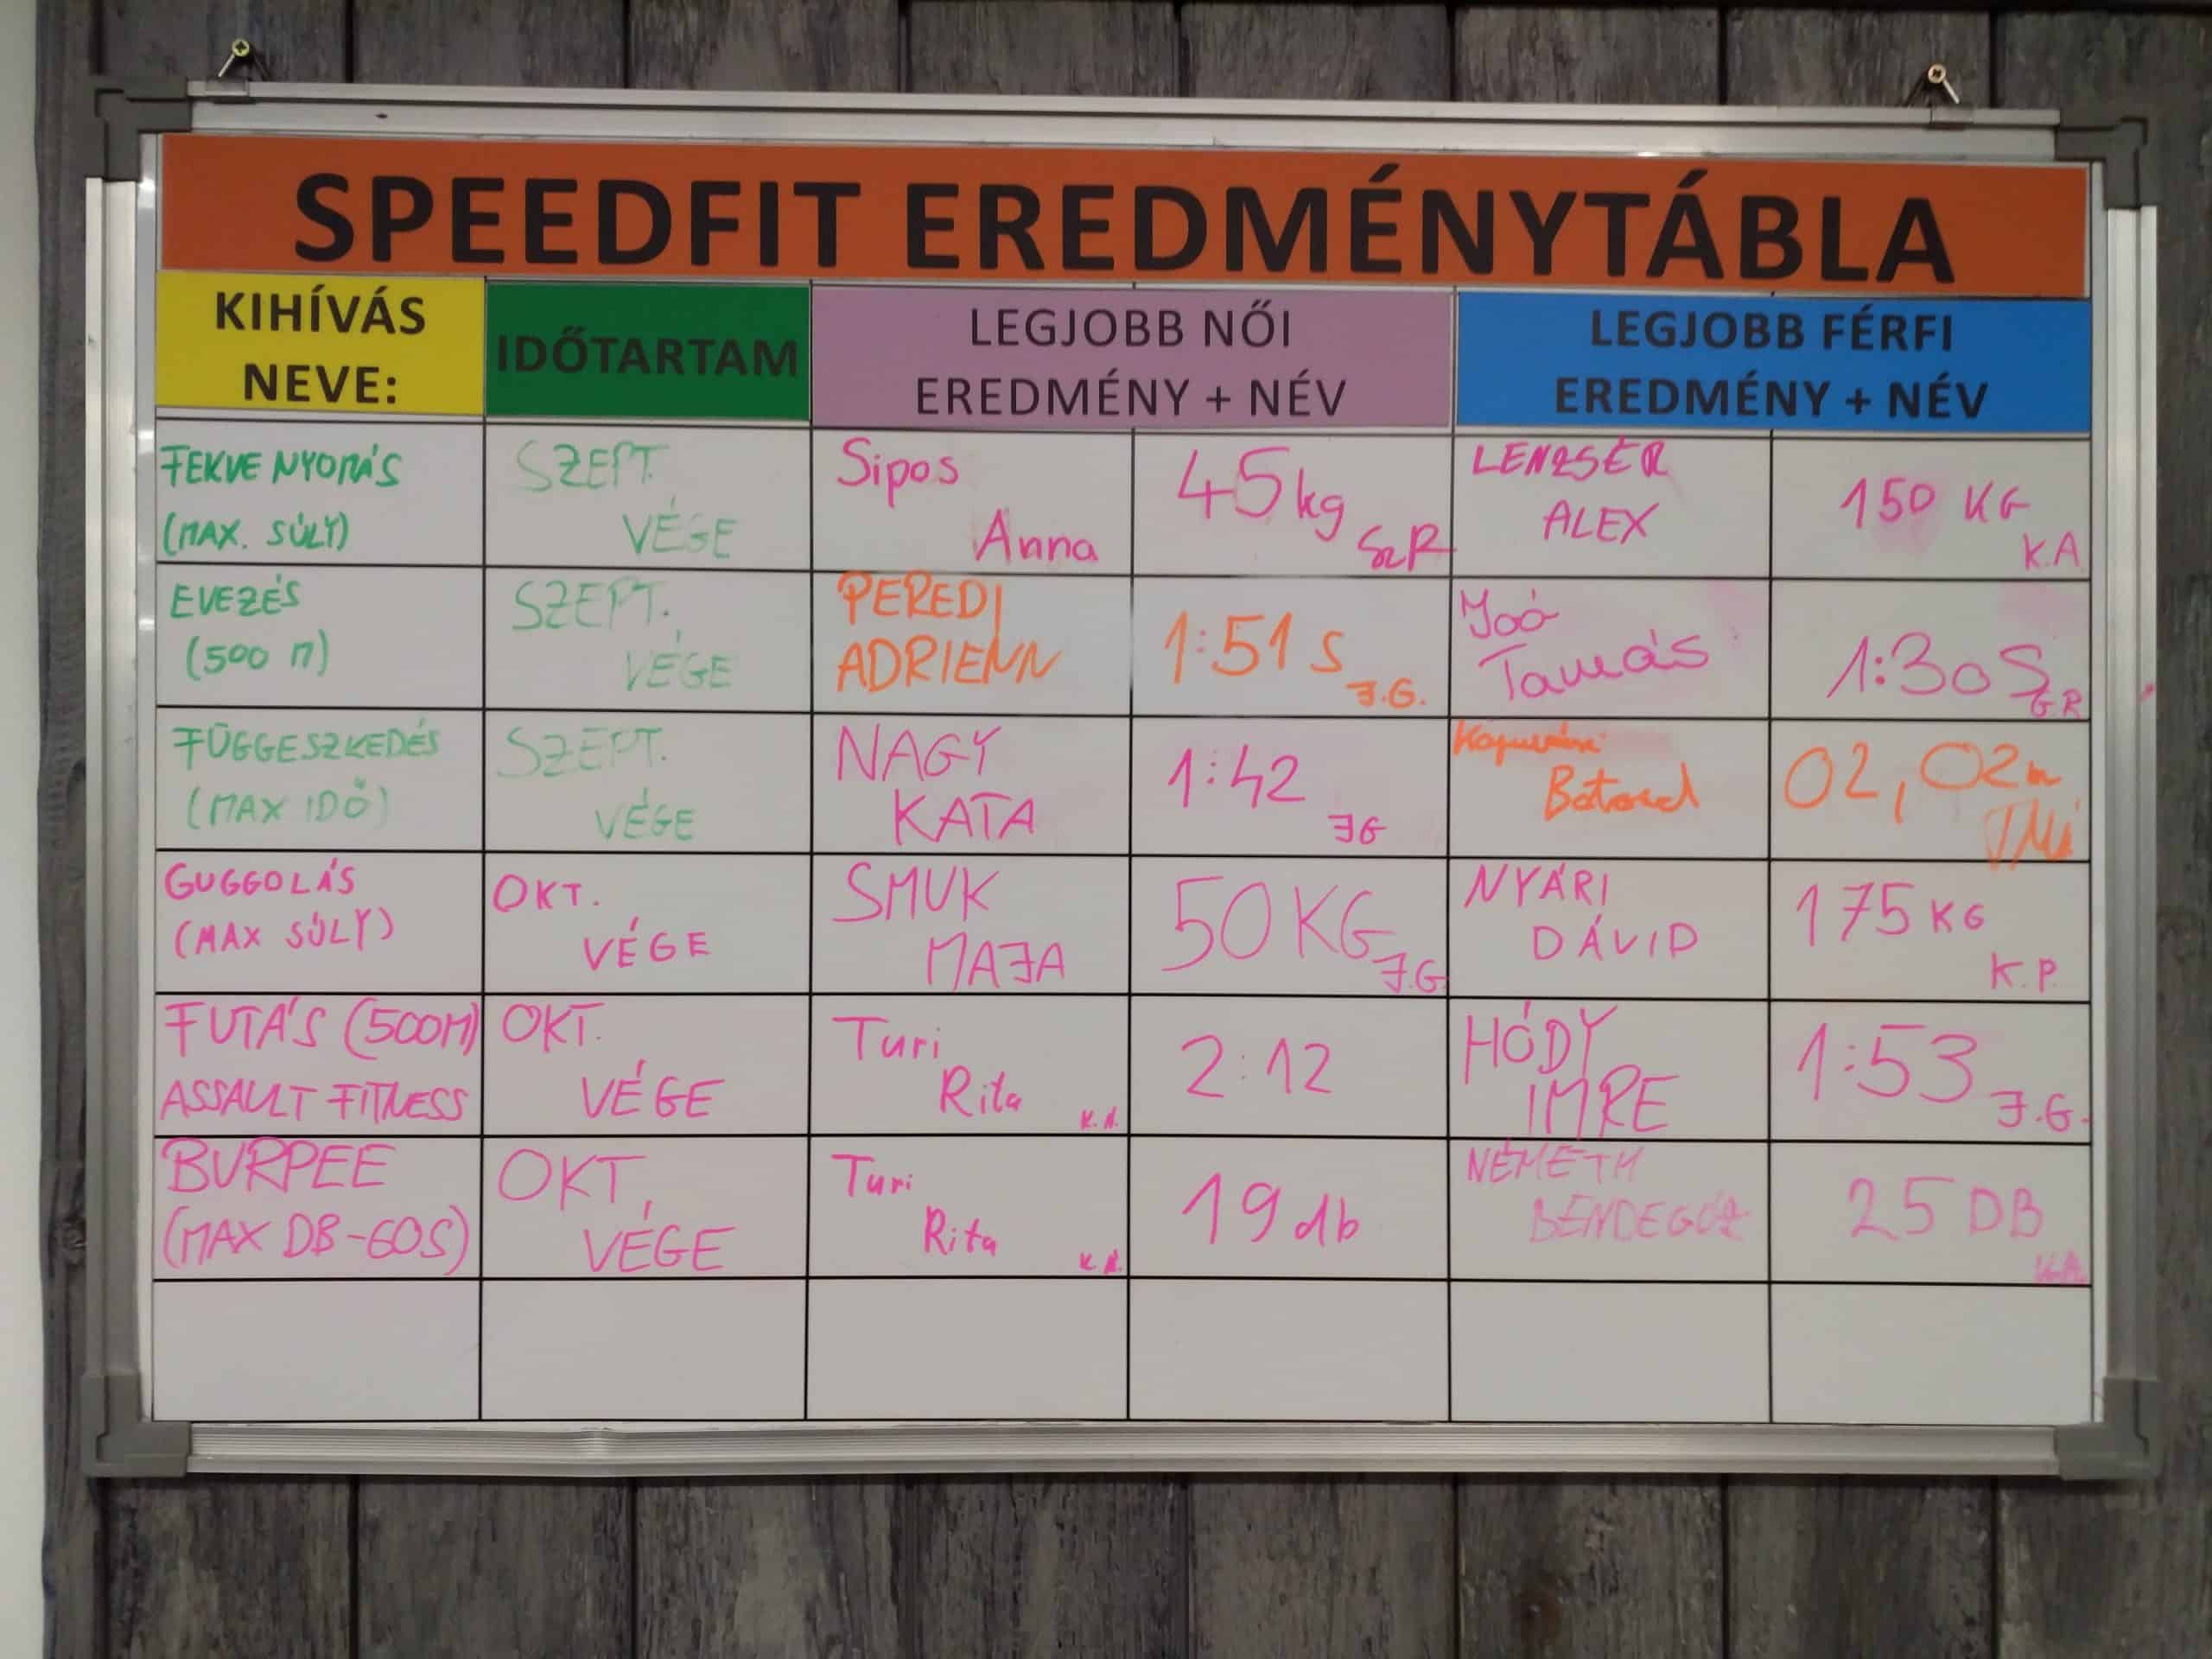 SPEEDFIT EREDMÉNYTÁBLA
KIHÍVÁS
NEVE:
IDŐTARTAM
LEGJOBB NŐI
EREDMÉNY + NÉV
LEGJOBB FÉRFI
EREDMÉNY + NÉV
FEKVE NYOMÁS
(MAX. SÚLY)
SZEPT.
VÉGE
Sipos
Anna
45kg
SzR
LENZSÉR
ALEX
150 KG
K.A.
EVEZÉS
(500 M)
SZEPT.
VÉGE
PEREDI
ADRIENN
1:51 S
J.G.
Joó
Tamás
1:30 S
GR
FÜGGESZKEDÉS
(MAX IDŐ)
SZEPT.
VÉGE
NAGY
KATA
1:42
JG
02,02m
GUGGOLÁS
(MAX SÚLY)
OKT.
VÉGE
SMUK
MAJA
50 KG
J.G.
NYÁRI
DÁVID
175 KG
K.P.
FUTÁS (500M)
ASSAULT FITNESS
OKT.
VÉGE
Turi
Rita
K.A.
2:12
HÓDY
IMRE
1:53
J.G.
BURPEE
(MAX DB-60S)
OKT.
VÉGE
Turi
Rita
K.A.
19 db
NÉMETH
BENDEGÚZ
25 DB
K.A.